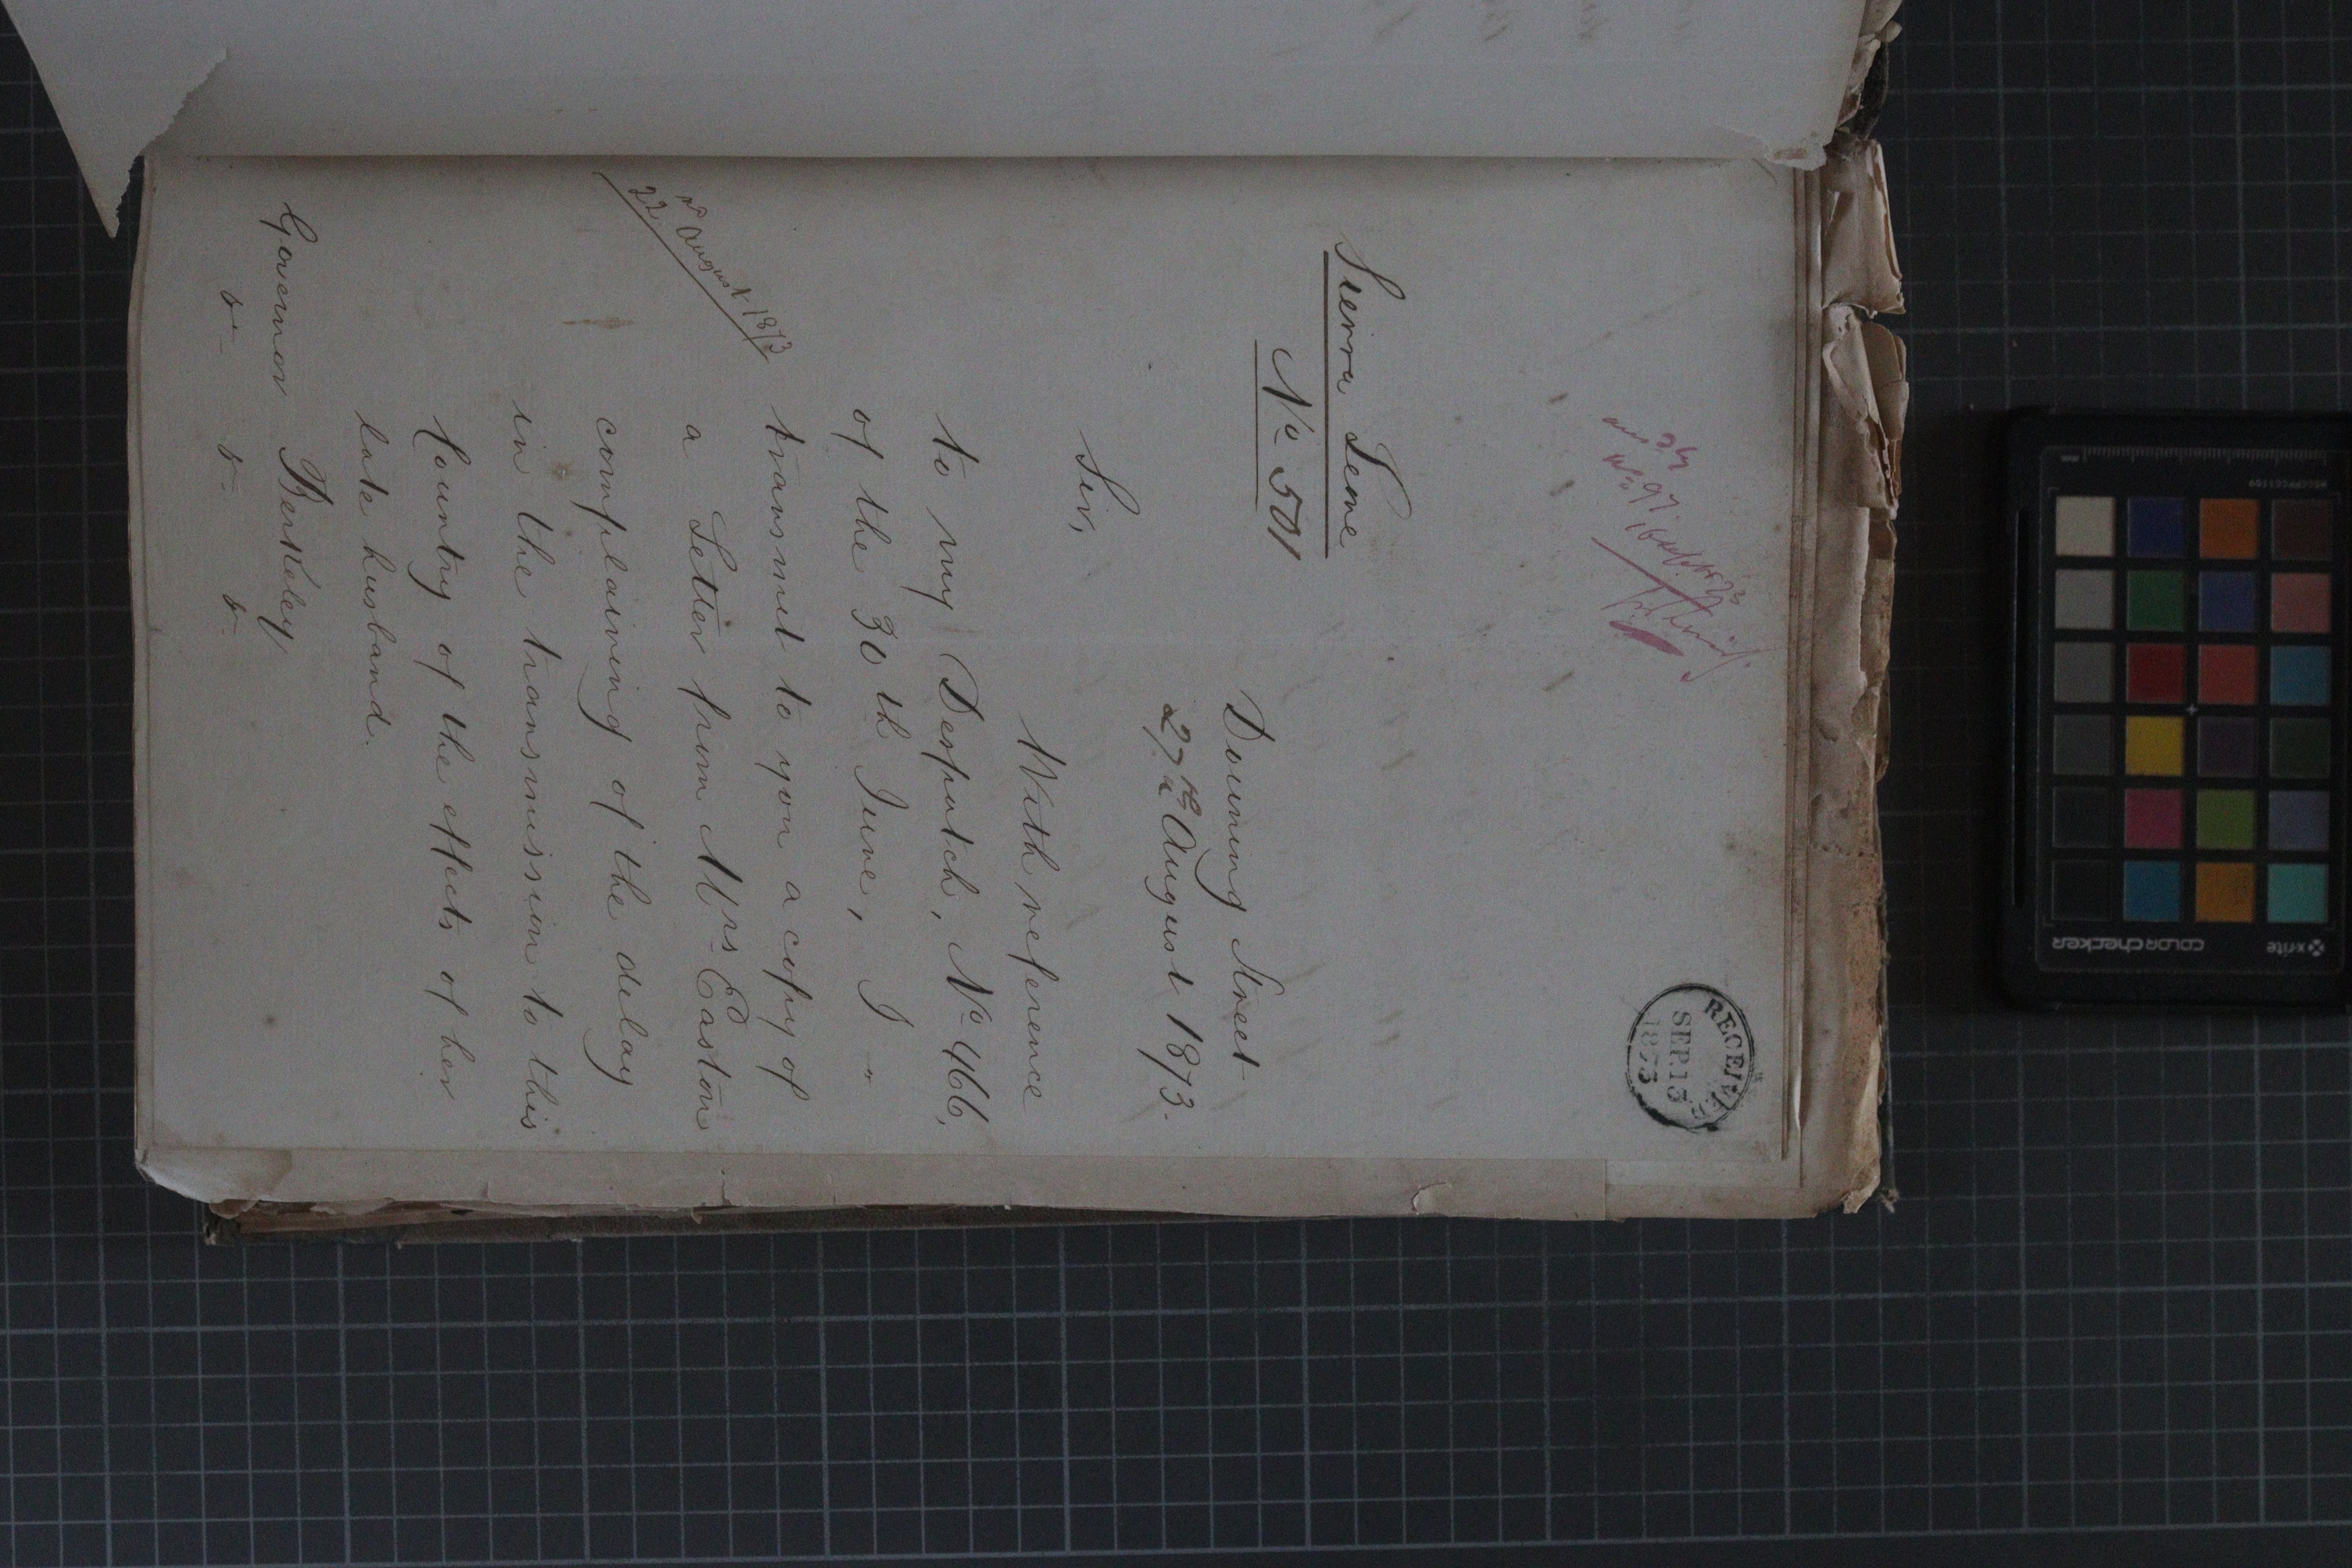 RECEIVED
SEP. 13
1873
Sierra Leone
No 501
Downing Street
27th August 1873.
Sir,
With reference
to my Despatch, No 466,
of the 30th June, I
transmit to you a copy of
22nd August 1873
a Letter from Mrs Easton
complaining of the delay
in the transmission to this
Country of the effects of her
late husband.
Governor Berkeley
&c &c &c
x-rite
colorchecker